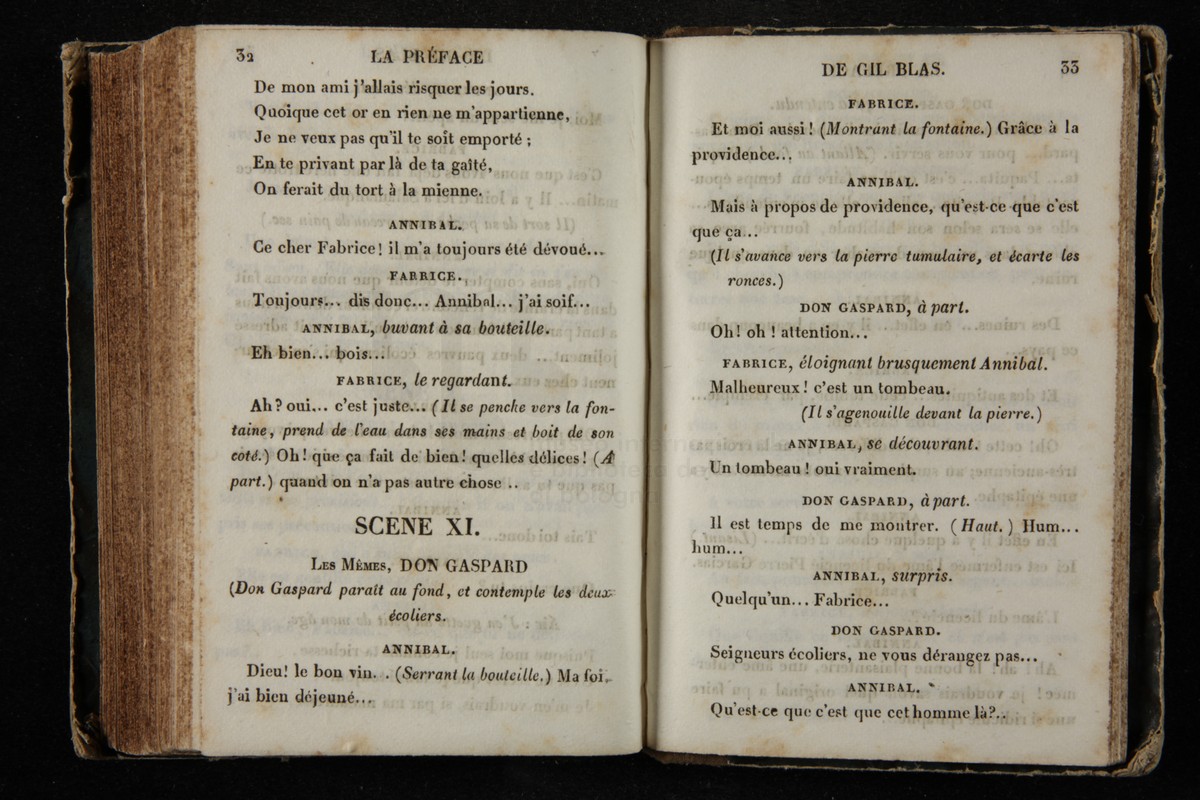 32 LA PRÉFACE
De mon ami j'allais risquer les jours.
Quoique cet or en rien ne m'appartienne,
Je ne veux pas qu'il te soit emporté ;
En te privant par là de ta gaîté,
On ferait du tort à la mienne.
ANNIBAL.
Ce cher Fabrice! il m'a toujours été dévoué...
FABRICE.
Toujours... dis donc... Annibal... j'ai soif...
ANNIBAL, buvant à sa bouteille.
Eh bien... bois...
FABRICE, le regardant.
Ah? oui... c'est juste... (Il se penche vers la fon-
taine, prend de l'eau dans ses mains et boit de son
coté.) Oh! que ça fait de bien! quelles délices! (A
part.) quand on n'a pas autre chose ..
SCENE XI.
LES MÊMES, DON GASPARD
(Don Gaspard paraît au fond, et contemple les deux
écoliers.
ANNIBAL.
Dieu! le bon vin. . (Serrant la bouteille.) Ma foi,
j'ai bien déjeuné...
DE GIL BLAS. 33
FABRICE.
Et moi aussi! (Montrant la fontaine.) Grâce à la
providence...
ANNIBAL.
Mais à propos de providence, qu'est-ce que c'est
que ça...
(Il s'avance vers la pierre tumulaire, et écarte les
ronces.)
DON GASPARD, à part.
Oh! oh ! attention...
FABRICE, éloignant brusquement Annibal.
Malheureux ! c'est un tombeau.
(Il s'agenouille devant la pierre.)
ANNIBAL, se découvrant.
Un tombeau ! oui vraiment.
DON GASPARD, à part.
Il est temps de me montrer. (Haut.) Hum...
hum...
ANNIBAL, surpris.
Quelqu'un... Fabrice...
DON GASPARD.
Seigneurs écoliers, ne vous dérangez pas...
ANNIBAL.
Qu'est-ce que c'est que cet homme là?..